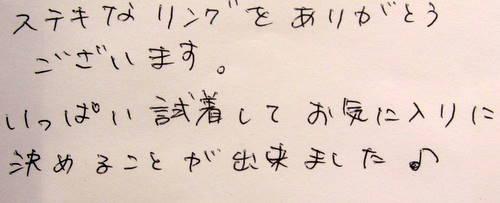 ステキな リングを ありがとう
ございます。
いっぱい 試着して お気に入りに
決めることが出来ました♪